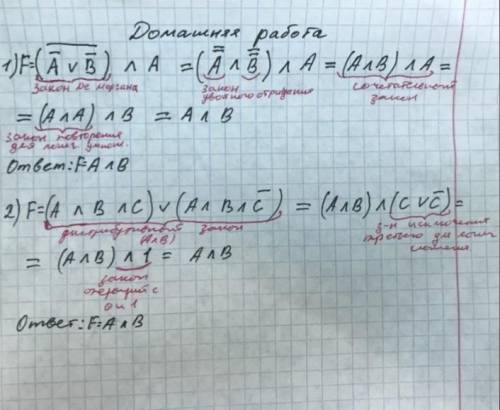 Домашняя работа
1) F=(A̅ ∨ B̅)̅ ∧ A = (A̿ ∧ B̿) ∧ A = (A∧B) ∧ A =
закон де моргана закон двойного отрицания сочетательный закон
= (A∧A) ∧ B = A ∧ B
закон повторения для логич. умнож.
Ответ: F=A∧B
2) F=(A ∧ B ∧ C) ∨ (A ∧ B ∧ C̅) = (A∧B) ∧ (C ∨ C̅) =
дистрибутивный закон (A∧B) з-н исключения третьего для логич. сложения
= (A∧B) ∧ 1 = A∧B
закон операций с 0 и 1
Ответ: F=A∧B